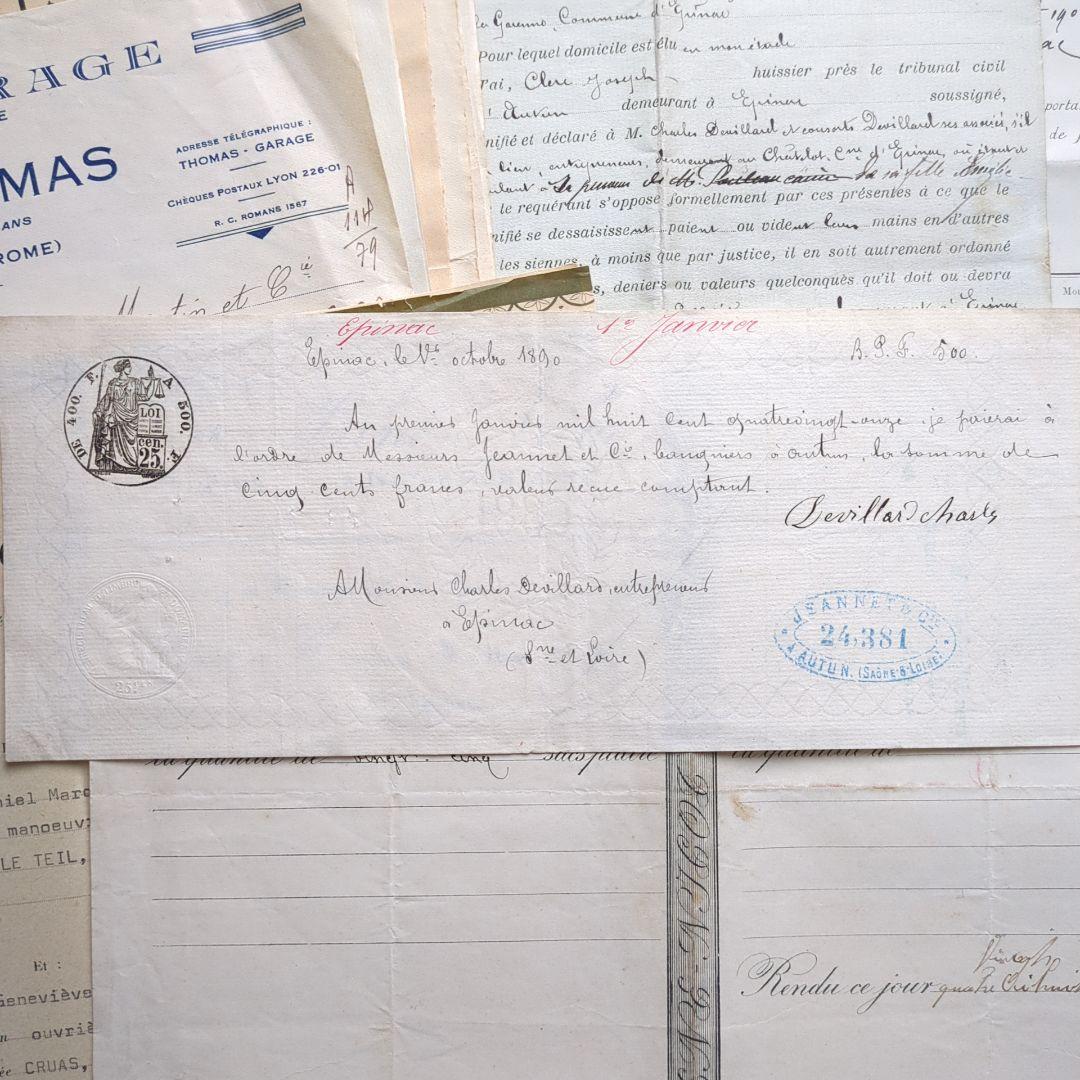 RAGE
MAS
ADRESSE TÉLÉGRAPHIQUE :
THOMAS - GARAGE
CHÈQUES POSTAUX LYON 226-01
R. C. ROMANS 1567
ANS
ROME)
A
114
79
et Cie
la Garenne, Commune d'Epinac
Pour lequel domicile est élu en mon étude
Clerc Joseph huissier près le tribunal civil
Autun demeurant à Epinac soussigné,
nifié et déclaré à M. Charles Devillard et consorts Devillard ses associés, s'il
entrepreneurs, demeurant au Cne d'Epinac, où étant et
le requérant s'oppose formellement par ces présentes à ce que le
nifié se dessaisissent paient ou vident leurs mains en d'autres
les siennes, à moins que par justice, il en soit autrement ordonné
s, deniers ou valeurs quelconques qu'il doit ou devra
Epinac 1er Janvier
Epinac, le 1er octobre 1890 B. P. F. 500.
DE 400. F. A 500. F.
LOI
cen.
25.
Au premier Janvier mil huit cent quatrevingt-onze je paierai à
l'ordre de Messieurs Jeannet et Cie, banquiers à autun, la somme de
cinq cents francs, valeur reçue comptant.
Devillard charles
A Monsieur Charles Devillard, entrepreneur
à Epinac
(Sne et Loire)
JEANNET & CIE
24,381
A AUTUN. (SAÔNE & LOIRE)
la quantité de vingt-cinq sacs plâtre
la quantité de
niel Marc
manoeuv
LE TEIL,
Et :
Geneviève
ouvriè
ée CRUAS,
Rendu ce jour